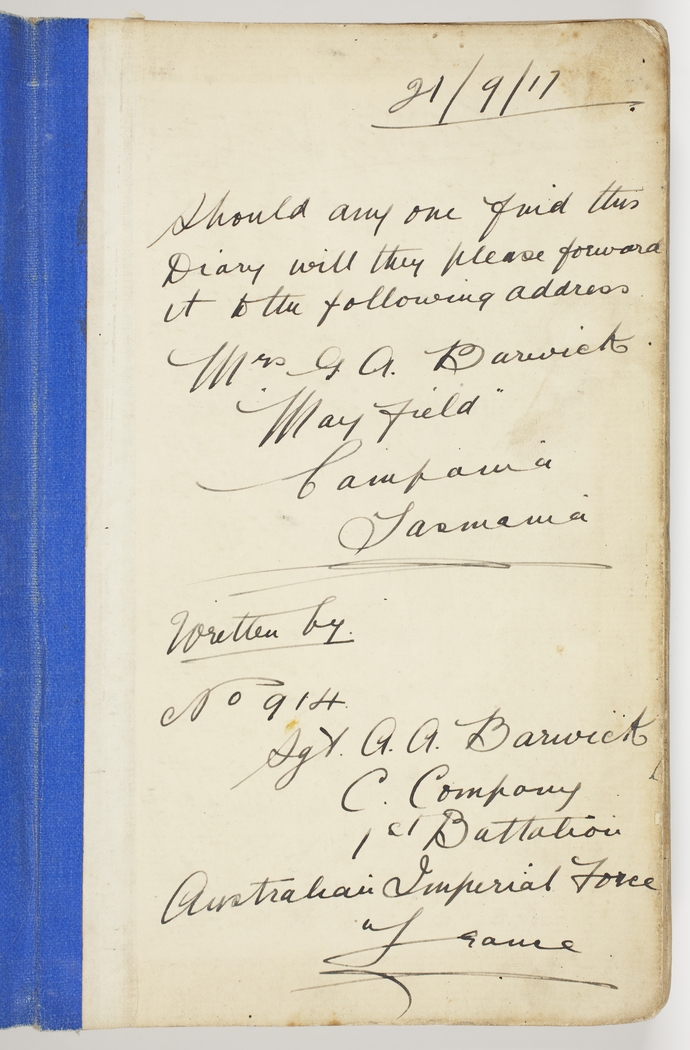 21/9/17
Should any one find this
Diary will they please forward
it to the following address
Mrs G A. Barwick.
"Mayfield"
Campania
Tasmania
Written by.
No 914.
Sgt. A. A. Barwick
C. Company
1st Battalion
Australian Imperial Force
"France